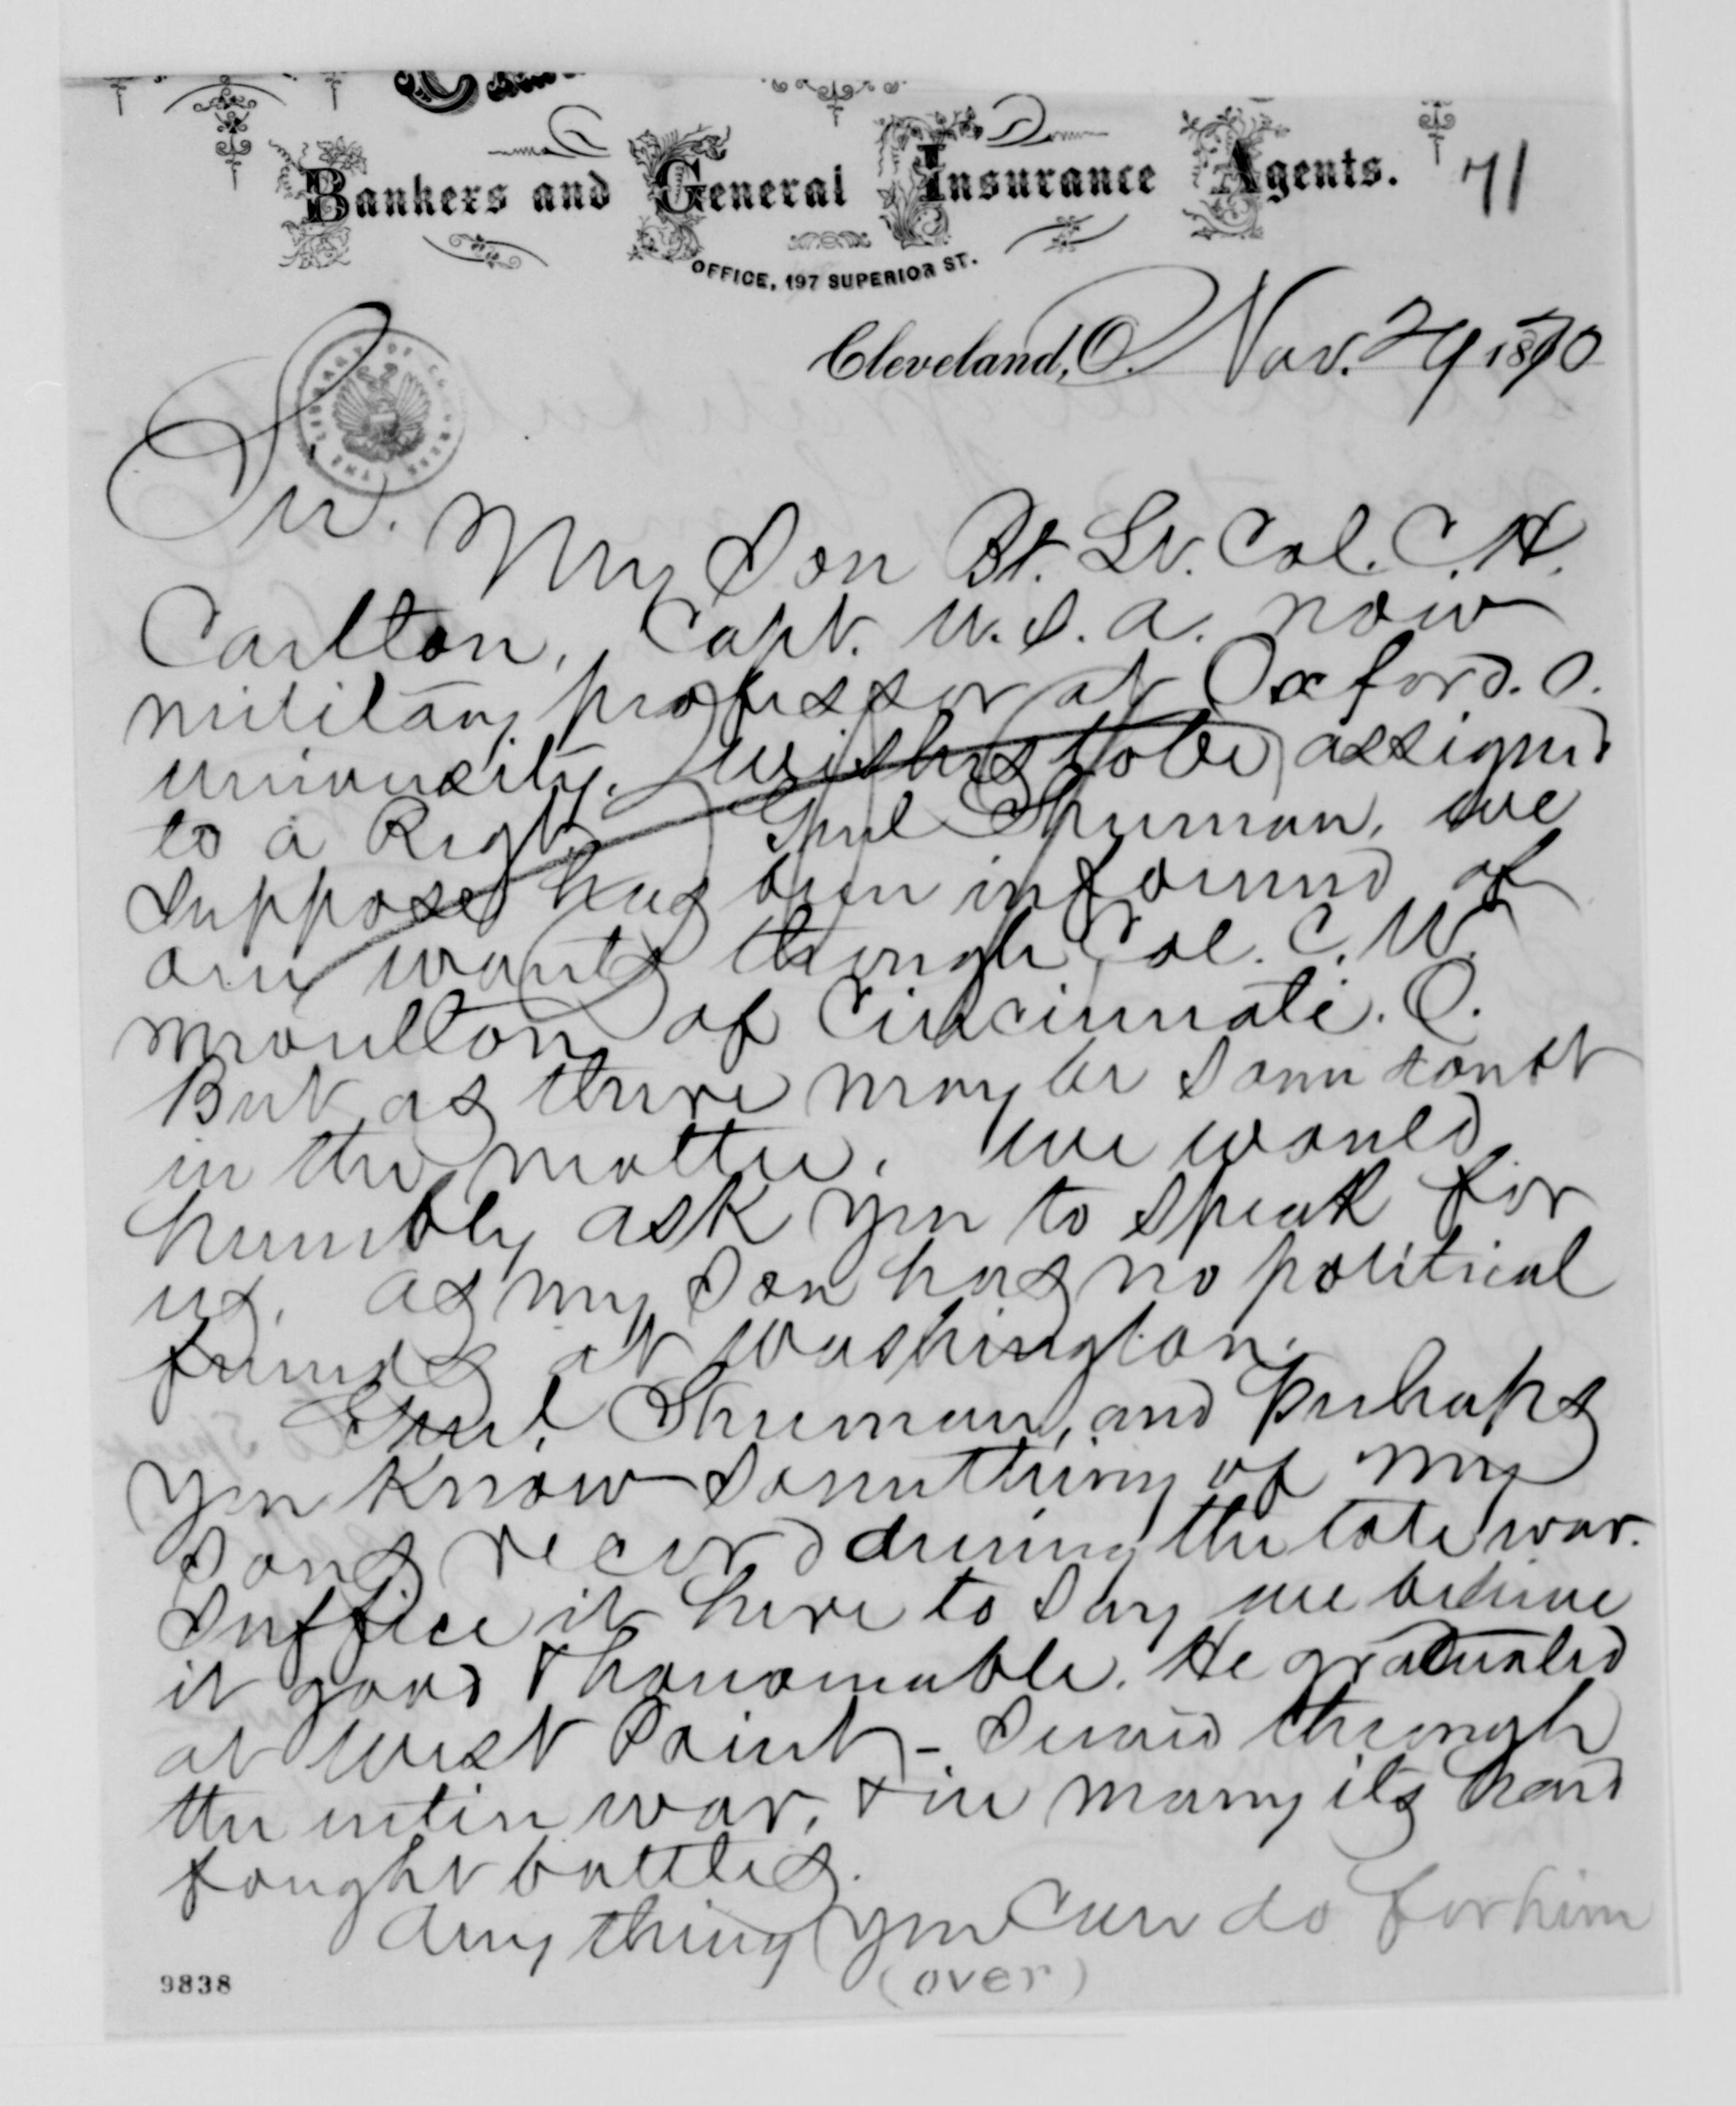 Bankers and General Insurance Agents.
71
OFFICE, 197 SUPERIOR ST.
Cleveland, O. Nov. 29 1870
Sir.
My Son Bt. Lt. Col. C. H.
Carlton, Capt. U. S. A. now
military professor at Oxford. O.
university. wishes to be assigned
to a Regt. Genl Sherman, we
suppose has been informed of
our wants through Col. C. W.
Moulton of Cincinnati. O.
But as there may be some doubt
in the matter. we would
humbly ask you to speak for
us. as my son has no political
friends at Washington.
Genl. Sherman, and perhaps
you know something of my
sons record during the late war.
Suffice it here to say we believe
it good & honourable. He graduated
at West Point - Served through
the entire war, & in many its hard
fought battles.
Any thing you can do for him
(over)
9838